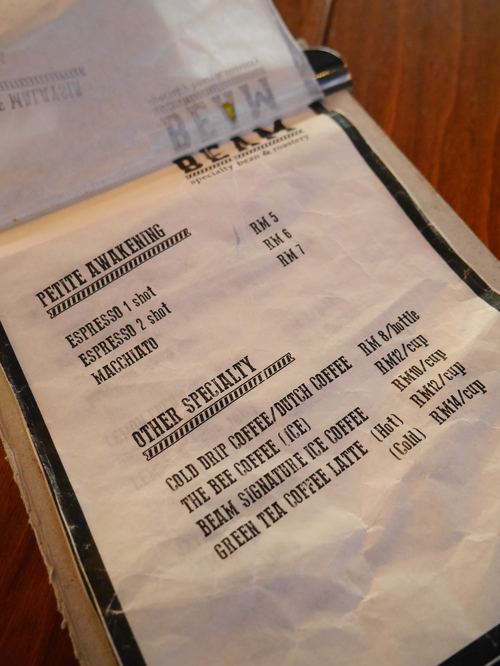 MALAYSIA
BEAM
BEAM
specialty bean & roastery
PETITE AWAKENING
ESPRESSO 1 shot RM 5
ESPRESSO 2 shot RM 6
MACCHIATO RM 7
OTHER SPECIALTY
COLD DRIP COFFEE/DUTCH COFFEE RM 8/bottle
THE BEE COFFEE (ICE) RM12/cup
BEAM SIGNATURE ICE COFFEE RM10/cup
GREEN TEA COFFEE LATTE (Hot) RM12/cup
(Cold) RM14/cup